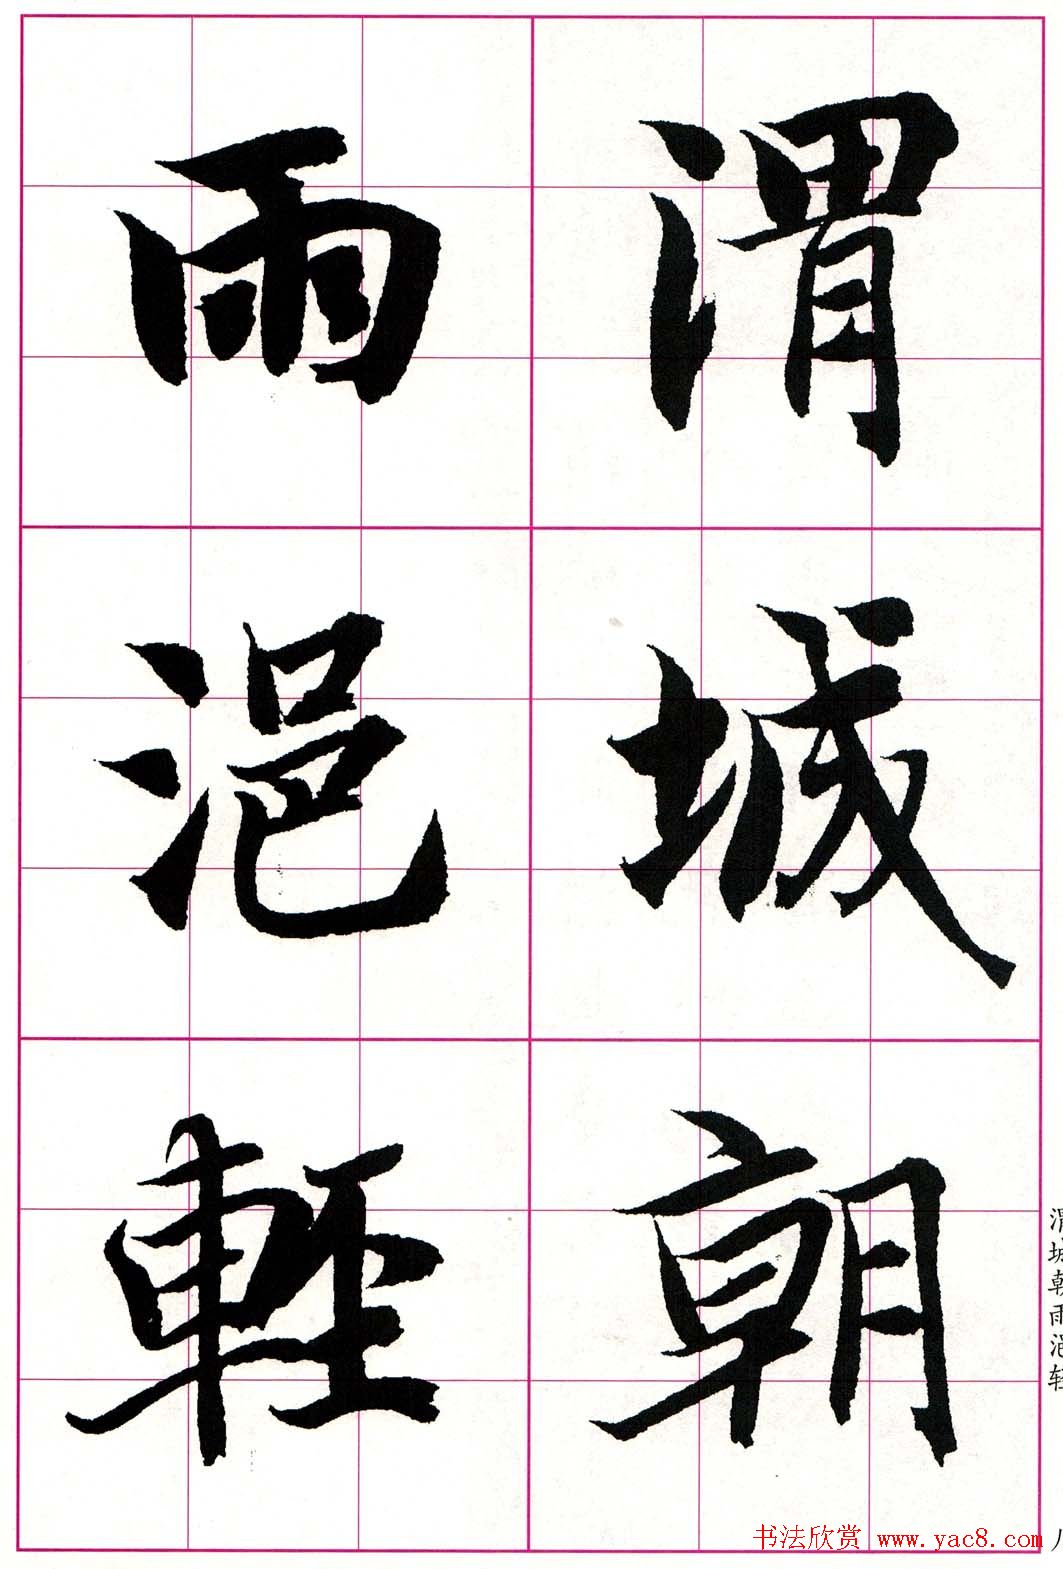 渭城朝
雨浥輕
渭城朝雨浥轻
八
书法欣赏 www.yac8.com